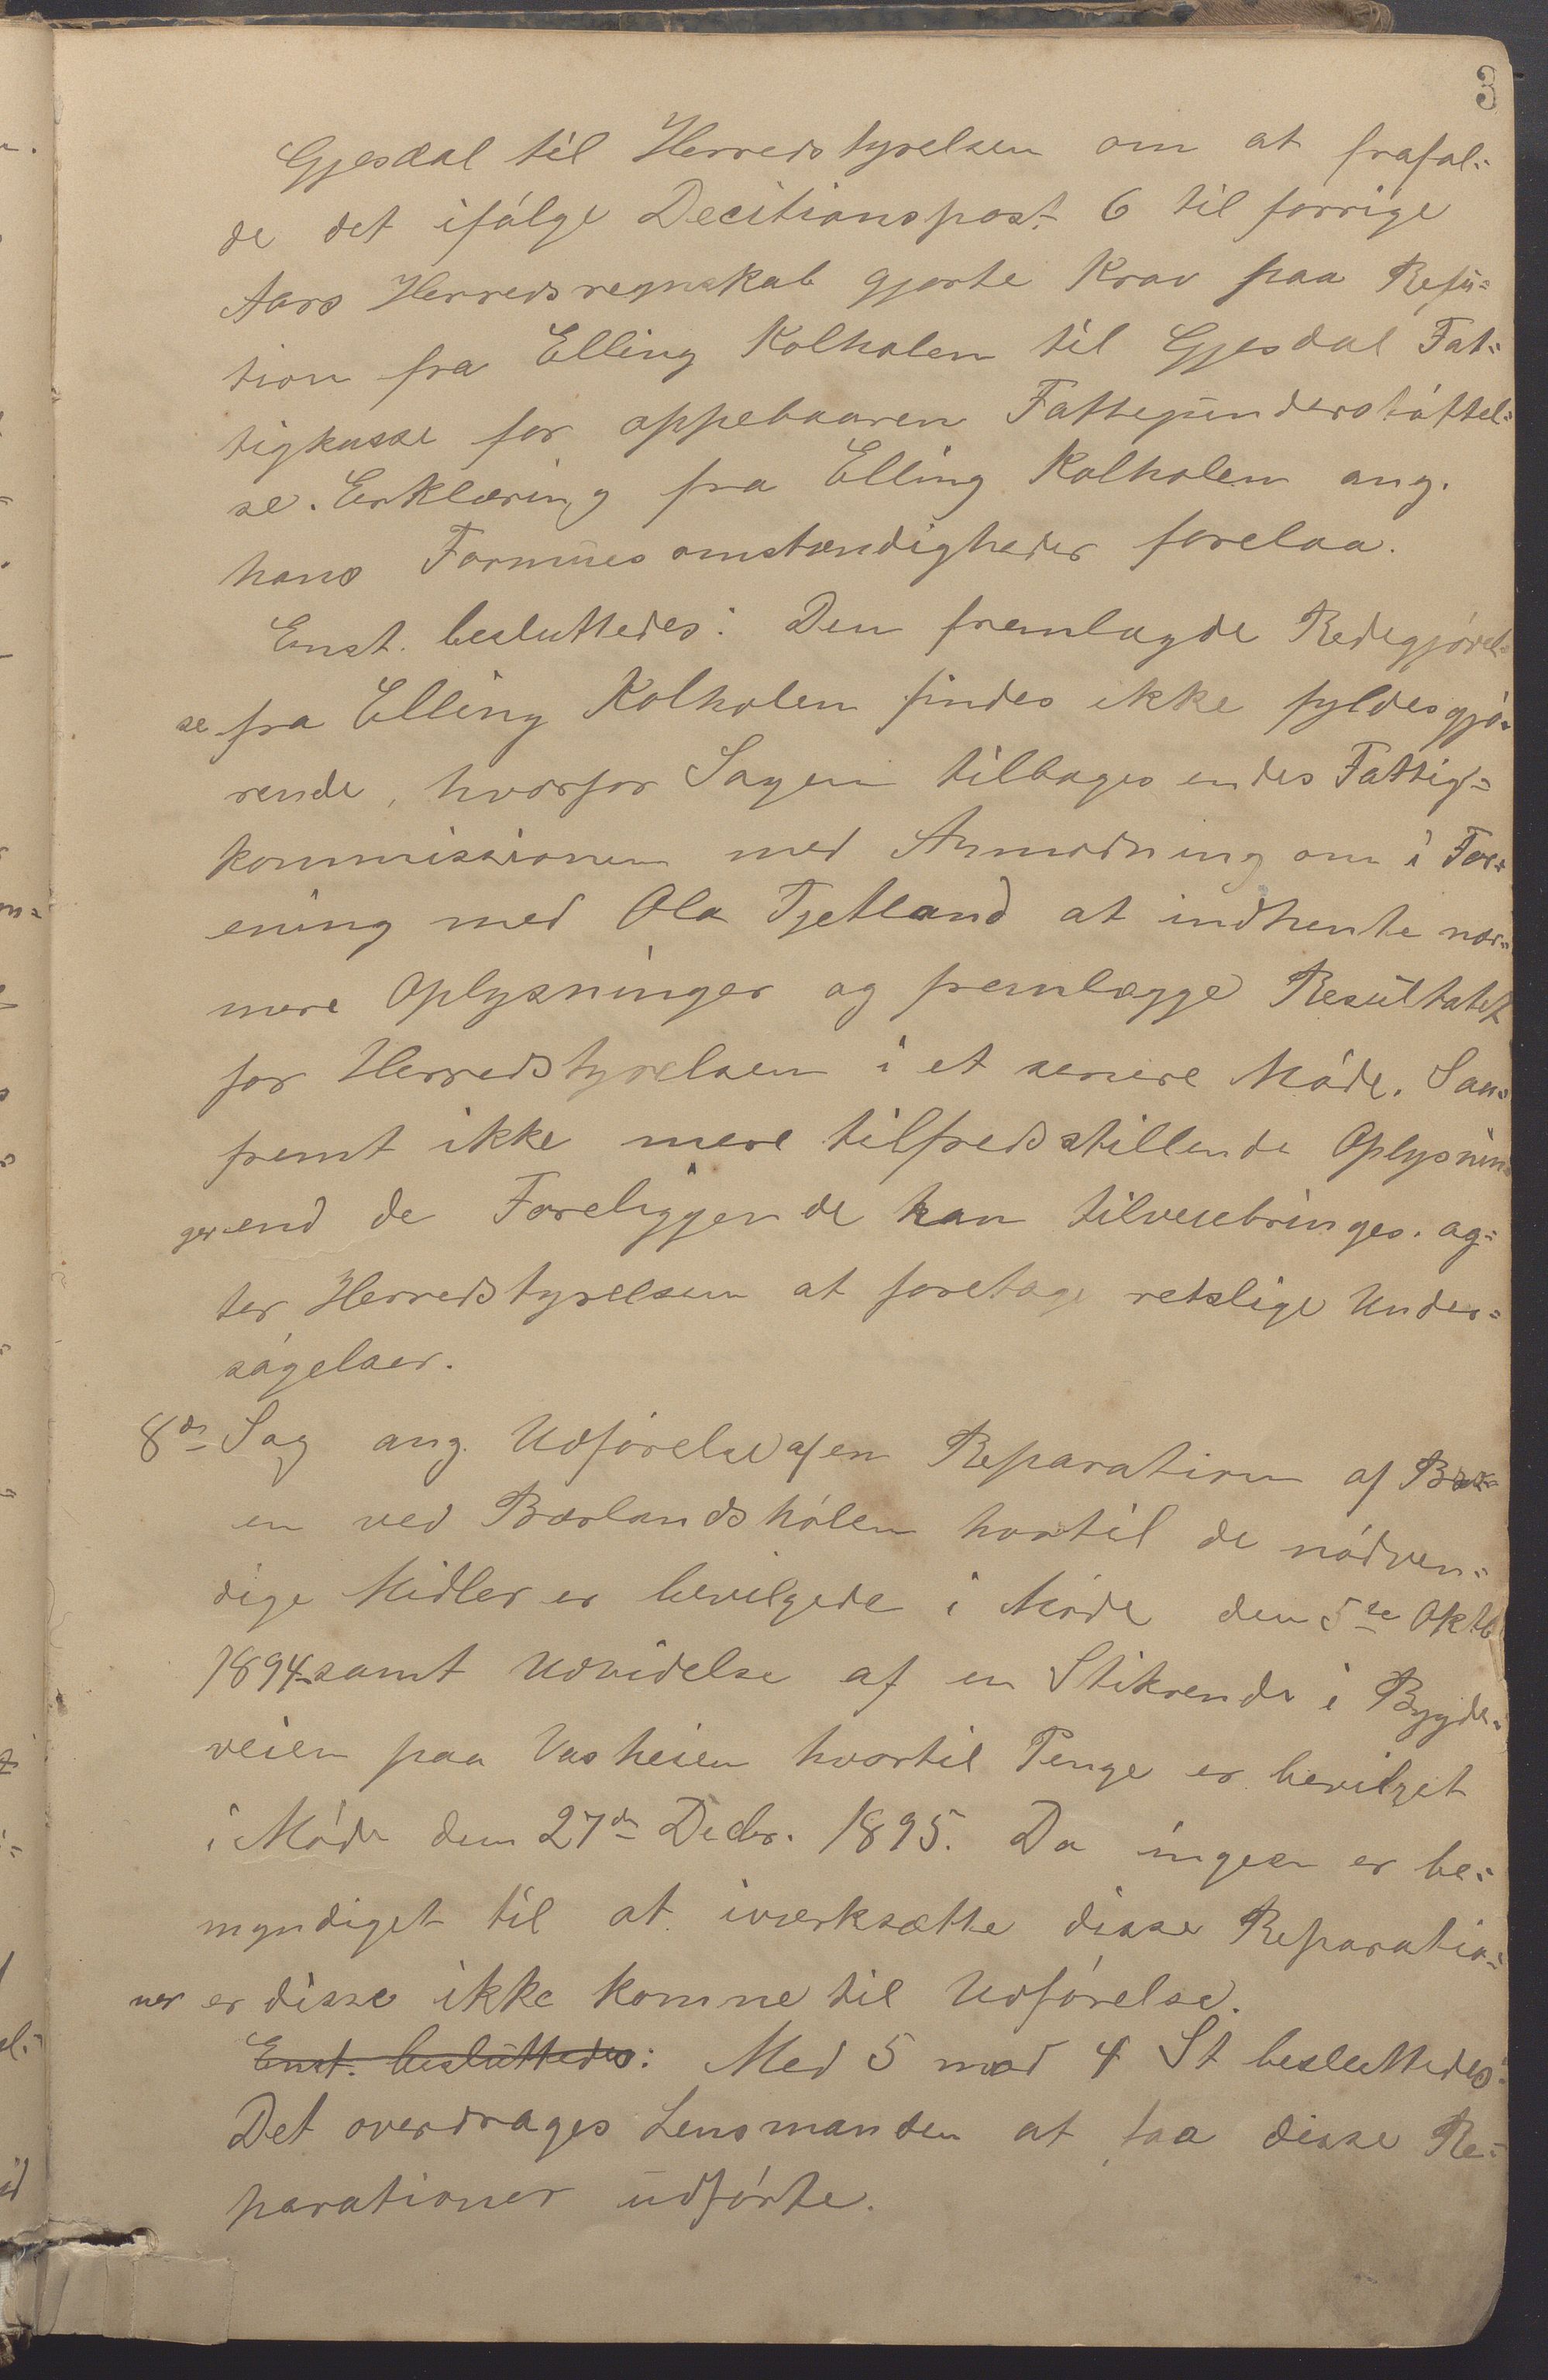 3
Gjesdal til Herredstyrelsen om at frafal-
de det ifølge Decitionspost 6 til forrige
Aars Herredsregnskab gjorte Krav paa Refu-
tion fra Elling Kolholen til Gjesdal Fat-
tigkasse for oppebaaren Fattigunderstøttel-
se. Erklæring fra Elling Kolholen ang.
hans Formuesomstændigheder forelaa.
Enst. besluttedes: Den fremlagde Redegjørel-
se fra Elling Kolholen findes ikke fyldesgjø-
rende, hvorfor Sagen tilbagesendes Fattig-
kommissionen med Anmodning om i For-
ening med Ola Tjetland at indhente nær-
mere Oplysninger og fremlægge Resultatet
for Herredstyrelsen i et senere Møde. Saa-
fremt ikke mere tilfredsstillende Oplysnin-
ger end de Foreliggende kan tilveiebringes. ag-
ter Herredstyrelsen at foretage retslige Under-
søgelser.
8de Sag ang. Udførelse af en Reparation af
en ved Bærlandshølen hvortil de nødven-
dige Midler er bevilgede i Møde den 5te Oktb
1894 samt Udvidelse af en Stikrende i Bygde-
veien paa Vasheien hvortil Penge er bevilget
i Møde den 27de Decbr. 1895. Da ingen er be-
myndiget til at iværksætte disse Reparatio-
ner er disse ikke komne til Udførelse.
Enst. besluttedes: Med 5 mod 4 St besluttedes:
Det overdrages Lensmanden at faa disse Re-
parationer udførte.